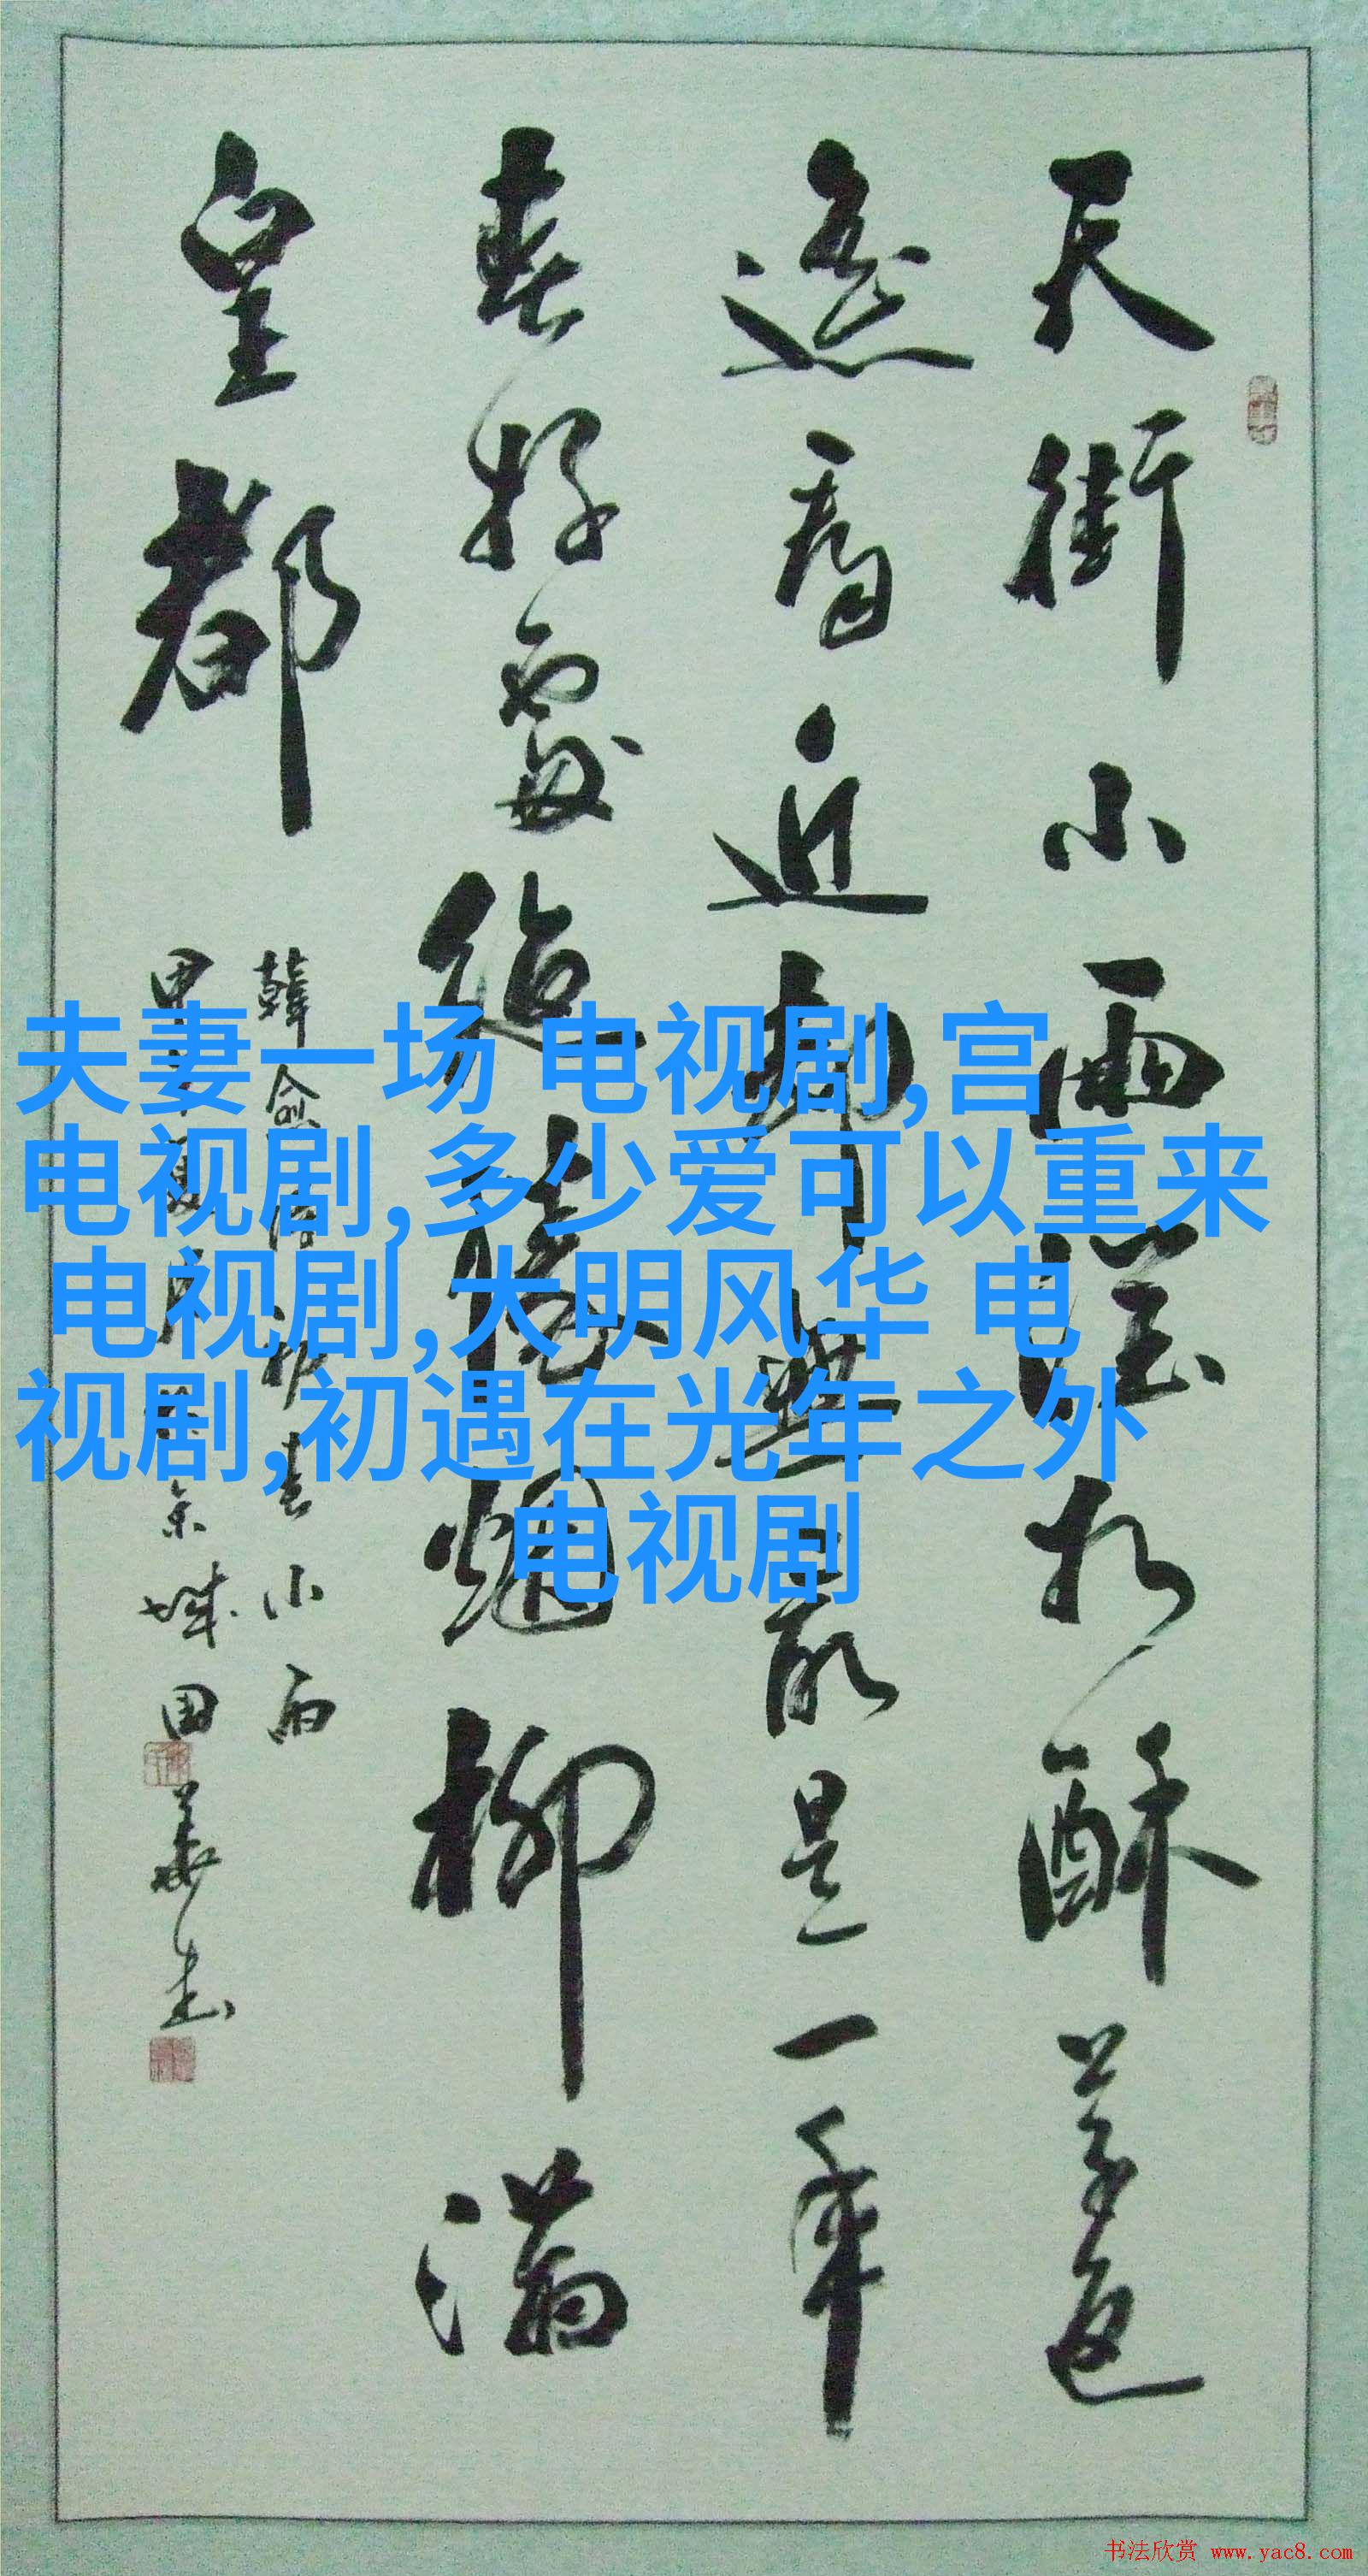 天街小雨潤如酥草色
遥看近却無最是一年
春好處絶勝烟柳滿
皇都
韓愈詩初春小雨
京城国華
夫妻一场 电视剧,宫
电视剧,多少爱可以重来
电视剧,大明风华 电
视剧,初遇在光年之外
电视剧
书法欣赏 www.yac8.com